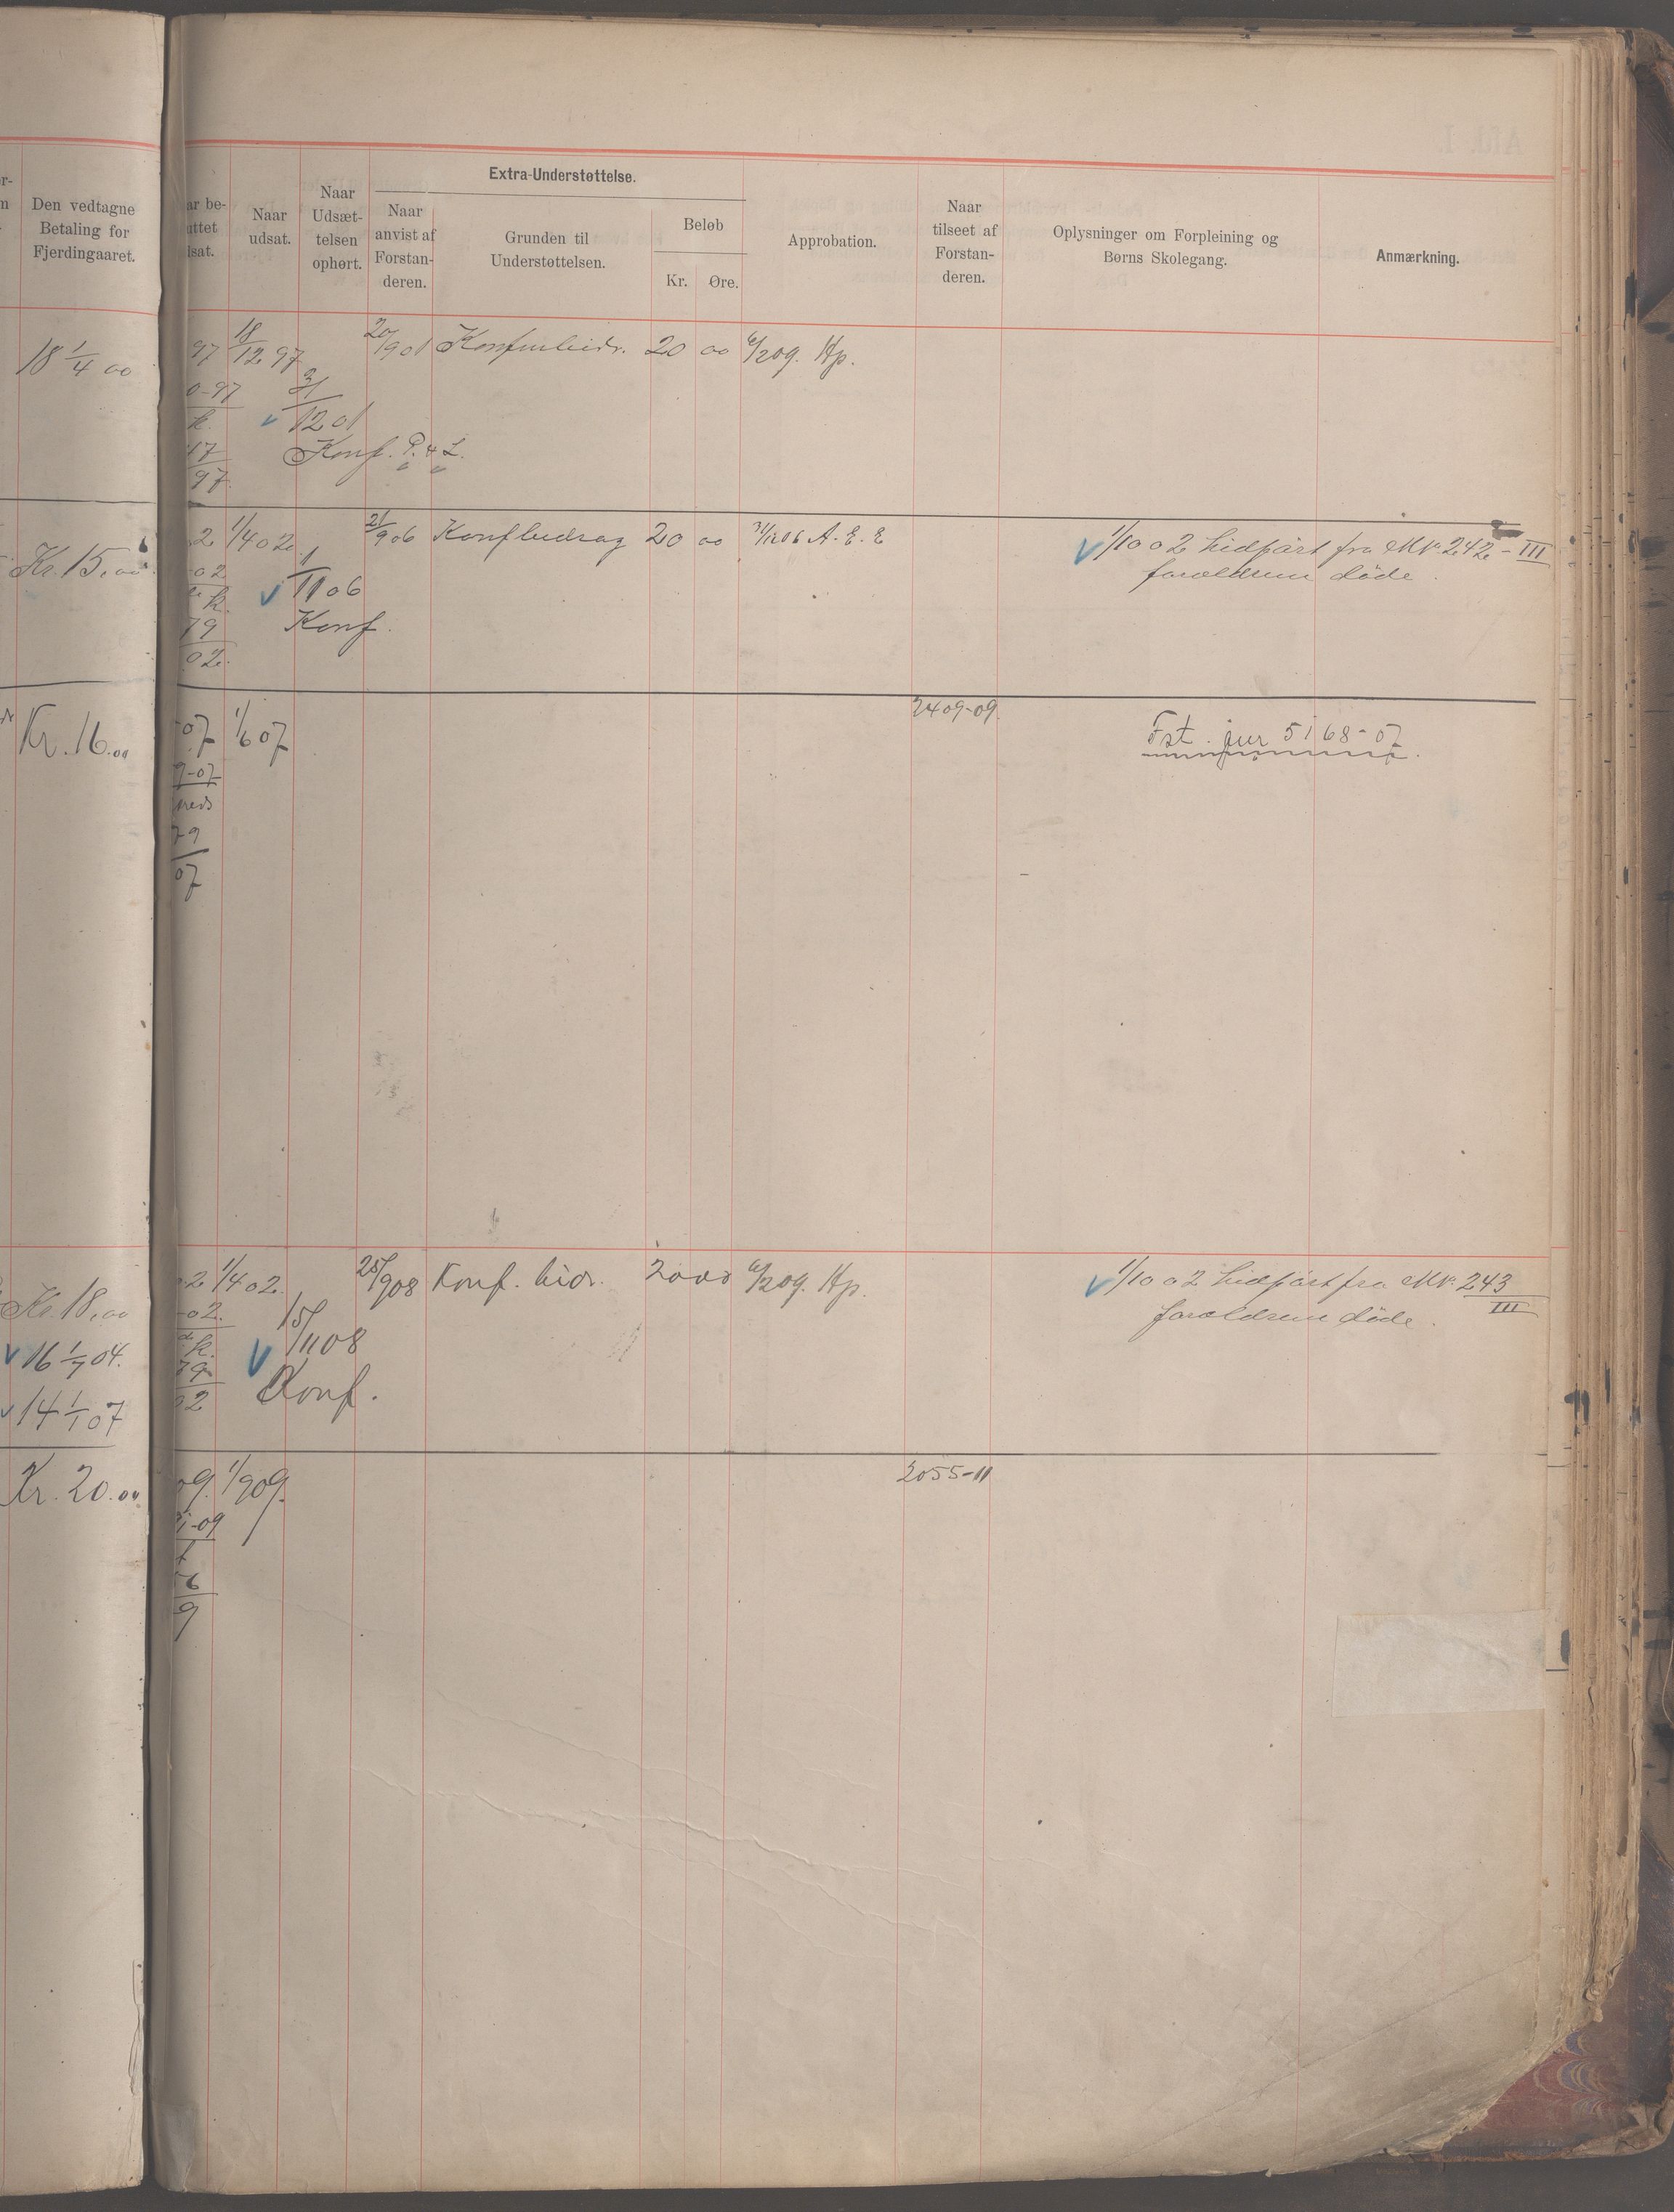 Den vedtagne
Betaling for
Fjerdingaaret.
Naar
udsat.
Naar
Udsæt-
telsen
ophørt.
Extra-Understøttelse.
Naar
anvist af
Forstan-
deren.
Grunden til
Understøttelsen.
Beløb
Kr. Øre.
Approbation.
Naar
tilseet af
Forstan-
deren.
Oplysninger om Forpleining og
Børns Skolegang.
Anmærkning.
18 1/4 00
97 18/12 97 20/9 01 20 00 6/2 09. Hp.
0-97 3/1
k. 12 01
17 Konf. P. & L.
97
Kr. 15,00
2 1/4 02. 21/9 06 Konfbidrag 20 00 31/12 06 A. E. E 1/10 02 hidført fra MNr. 242 - III
02 1 foreldrene døde.
k. 11 06
79 Konf.
02.
Kr. 16.00
07 1/6 07 2409-09 Fst. jur 5168-07
9-07
79
07
Kr. 18,00
2 1/4 02. 25/9 08 Konf. bidr. 20 00 6/2 09. Hp. 1/10 02 hidført fra MNr. 243
02. 15 III
foreldrene døde.
16 1/7 04. k. /11 08
79 Konf.
14 1/1 07 2
Kr. 20.00
09. 1/9 09. 2055-11
-09
6
9